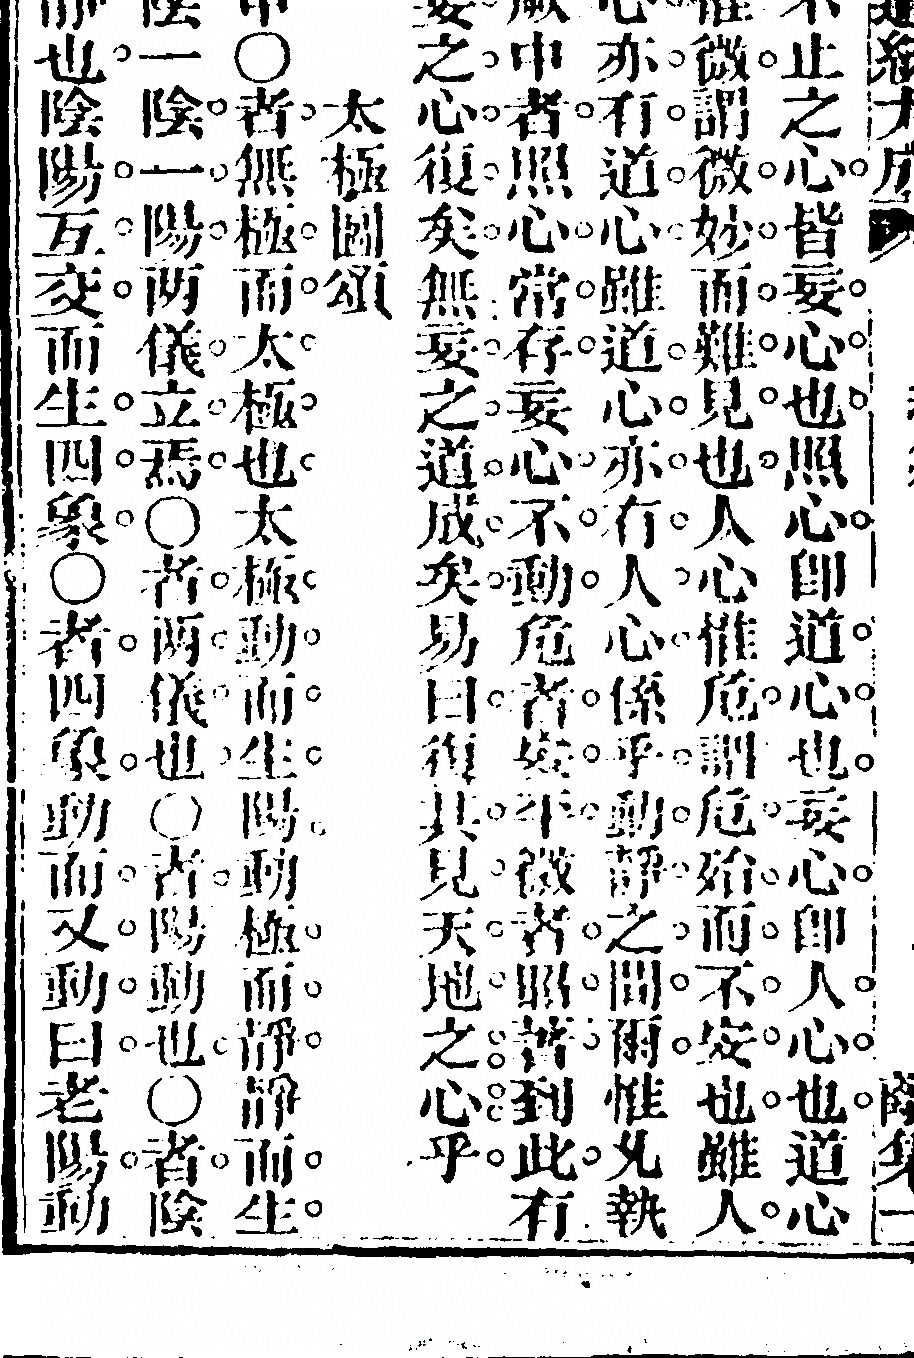 不止之心皆妄心也照心卽道心也妄心卽人心也道心
惟微謂微妙而難見也人心惟危謂危殆而不安也雖人
心亦有道心雖道心亦有人心係乎動靜之間爾惟允執
厥中者照心常存妄心不動危者安平微者昭著到此有
妄之心復矣無妄之道成矣易曰復其見天地之心乎
太極圖頌
中〇者無極而太極也太極動而生陽動極而靜靜而生
陰一陰一陽兩儀立焉〇者兩儀也〇者陽動也〇者陰
靜也陰陽互交而生四象〇者四象動而又動曰老陽動